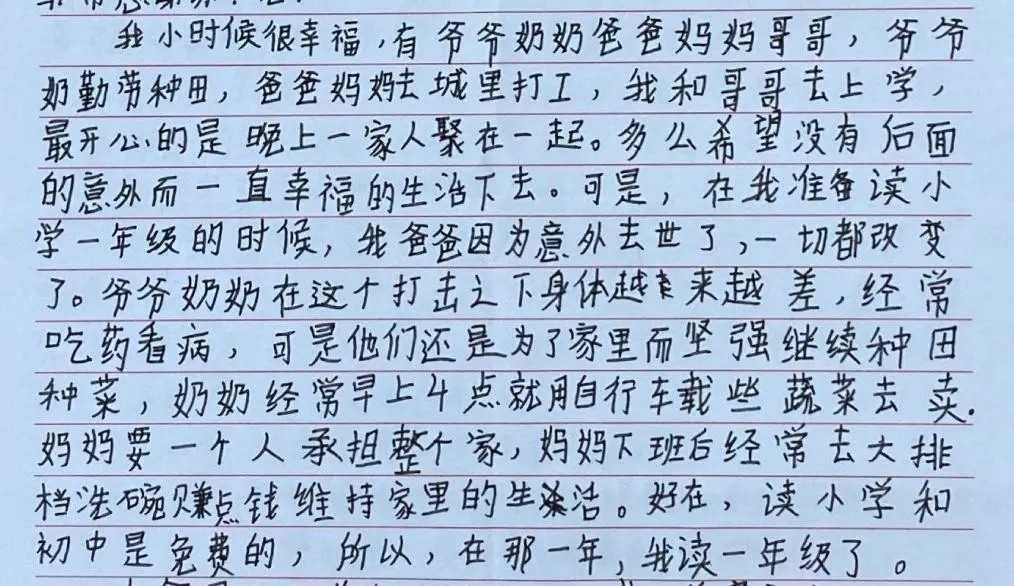 我小时候很幸福，有爷爷奶奶爸爸妈妈哥哥，爷爷
奶勤劳种田，爸爸妈妈去城里打工，我和哥哥去上学，
最开心的是晚上一家人聚在一起。多么希望没有后面
的意外而一直幸福的生活下去。可是，在我准备读小
学一年级的时候，我爸爸因为意外去世了，一切都改变
了。爷爷奶奶在这个打击之下身体越来越差，经常
吃药看病，可是他们还是为了家里而坚强继续种田
种菜，奶奶经常早上4点就用自行车载些蔬菜去卖.
妈妈要一个人承担整个家，妈妈下班后经常去大排
档洗碗赚点钱维持家里的生活。好在，读小学和
初中是免费的，所以，在那一年，我读一年级了。